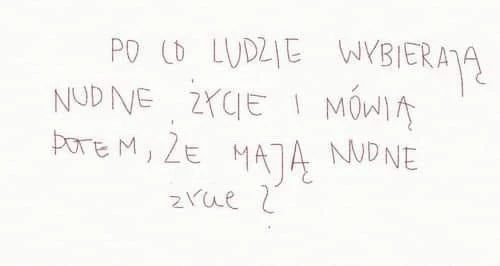 PO CO LUDZIE WYBIERAJĄ
NUDNE ŻYCIE I MÓWIĄ
POTEM, ŻE MAJĄ NUDNE
życie?